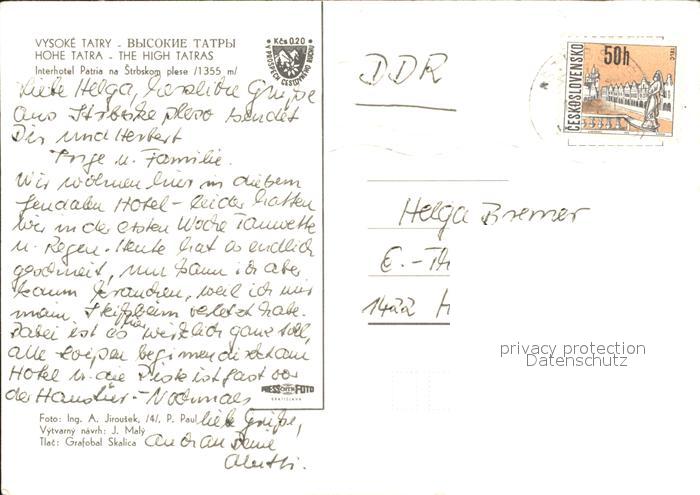 VYSOKÉ TATRY - ВЫСОКИЕ ТАТРЫ
HOHE TATRA - THE HIGH TATRAS
Interhotel Patria na Štrbskom plese /1355 m/
Kčs 0.20
V PROSPECH CESTOVNÉHO RUCHU
Liebe Helga, herzliche Grüße
aus Strbske pleso sendet
Dir und Herbert
Inge u. Familie.
Wir wohnen hier in diesem
feudalen Hotel - leider hatten
wir in der ersten Woche Tauwetter
u. Regen. Heute hat es endlich
geschneit, nur kann ich aber
kaum kraucheln, weil ich mir
mein verletzt habe.
Dabei ist es hier wirklich ganz toll,
alle beginnen direkt am
Hotel u. die Piste ist fast vor
der Haustür - Nochmals
liebe Grüße,
auch an Deine
Mutti.
PRESSFOTO
BRATISLAVA
Foto: Ing. A. Jiroušek, /4/, P. Paul
Výtvarný návrh: J. Malý
Tlač: Grafobal Skalica
DDR
ČESKOSLOVENSKO
50h
Helga Bremer
E.-Th
1422 H
privacy protection
Datenschutz